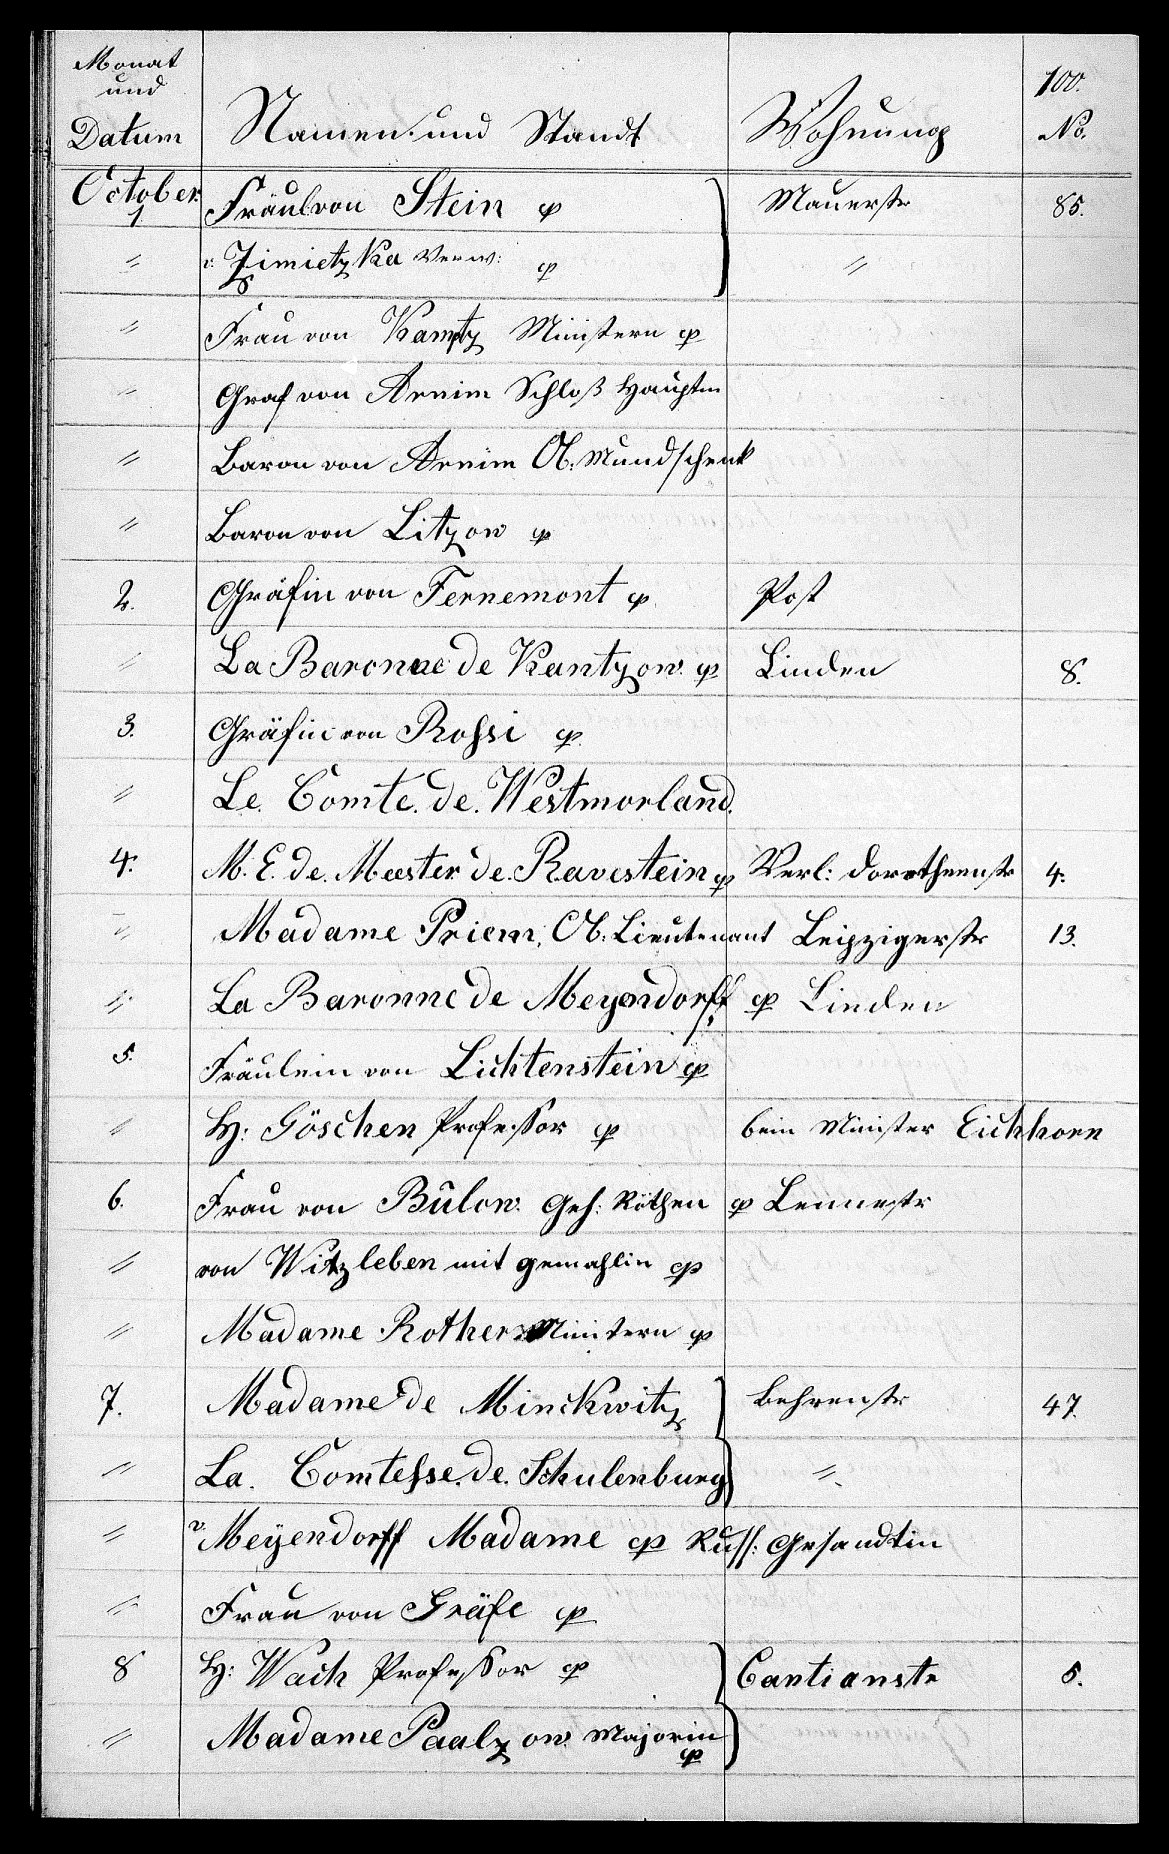 Monat und Datum | Namen und Standt | Wohnung | 100. No.
October 1. Fräul von Stein p Mauerstr 85.
" v: Zimietzka Verw: p "
" Frau von Kamptz Ministern p
" Graf von Arnim Schloß Hauptm
" Baron von Arnim Ob: Mundschenk
" Baron von Litzow p
2. Gräfin von Fernemont p Post
" La Baronne de Kantzow p Linden 8.
3. Gräfin von Rossi p.
" Le Comte de Westmorland.
4. M. E. de Meester de Ravestein p Verl: Dorotheenstr 4.
" Madame Priem, Ob: Lieutenant Leipzigerstr 13.
" La Baronne de Meyendorff p Linden
5. Fräulein von Lichtenstein p
" H: Göschen Professor p beim Minister Eichhorn
6. Frau von Bülow Geh: Räthen p Lennestr
" von Witzleben mit gemahlin p
" Madame Rother Ministern p
7. Madame de Minckwitz Behrenstr 47.
" La Comtesse de Schulenburg "
" v: Meÿendorff Madame p Russ: Gesandtin
" Frau von Gräfe p
8 H: Wach Professor p Cantianstr 5.
" Madame Paalzow Majorin p